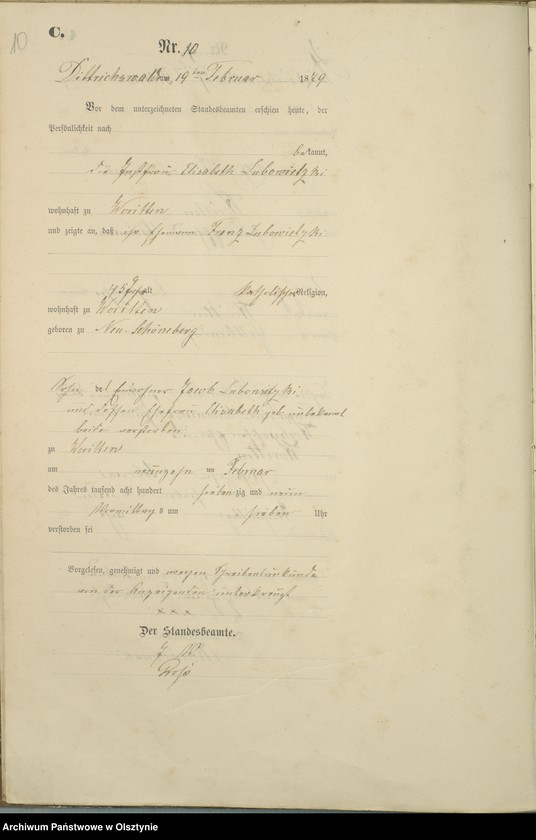 10
C.
Nr. 10
Dittrichswalde am 19ten Februar 1879
Vor dem unterzeichneten Standesbeamten erschien heute, der
Persönlichkeit nach
bekannt,
die Elisabeth Lubowietzki
wohnhaft zu Woritten
und zeigte an, daß ihr Ehemann Franz Lubowietzki
45 Jahr alt katholischer Religion,
wohnhaft zu Woritten
geboren zu Neu-Schöneberg
Sohn des Einwohner Jacob Lubowietzki
und dessen Ehefrau Elisabeth geb. unbekannt
beide verstorben
zu Woritten
am neunzehn ten Februar
des Jahres tausend acht hundert siebenzig und neun
Vormittags um sieben Uhr
verstorben sei
Vorgelesen, genehmigt und wegen Schreibensunkunde
von der Anzeigenden unterkreuzt
x x x
Der Standesbeamte.
Archiwum Państwowe w Olsztynie